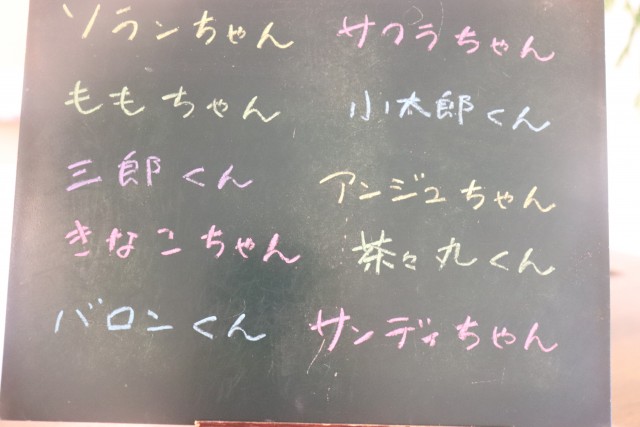 ソランちゃん
サクラちゃん
ももちゃん
小太郎くん
三郎くん
アンジュちゃん
きなこちゃん
茶々丸くん
バロンくん
サンディちゃん